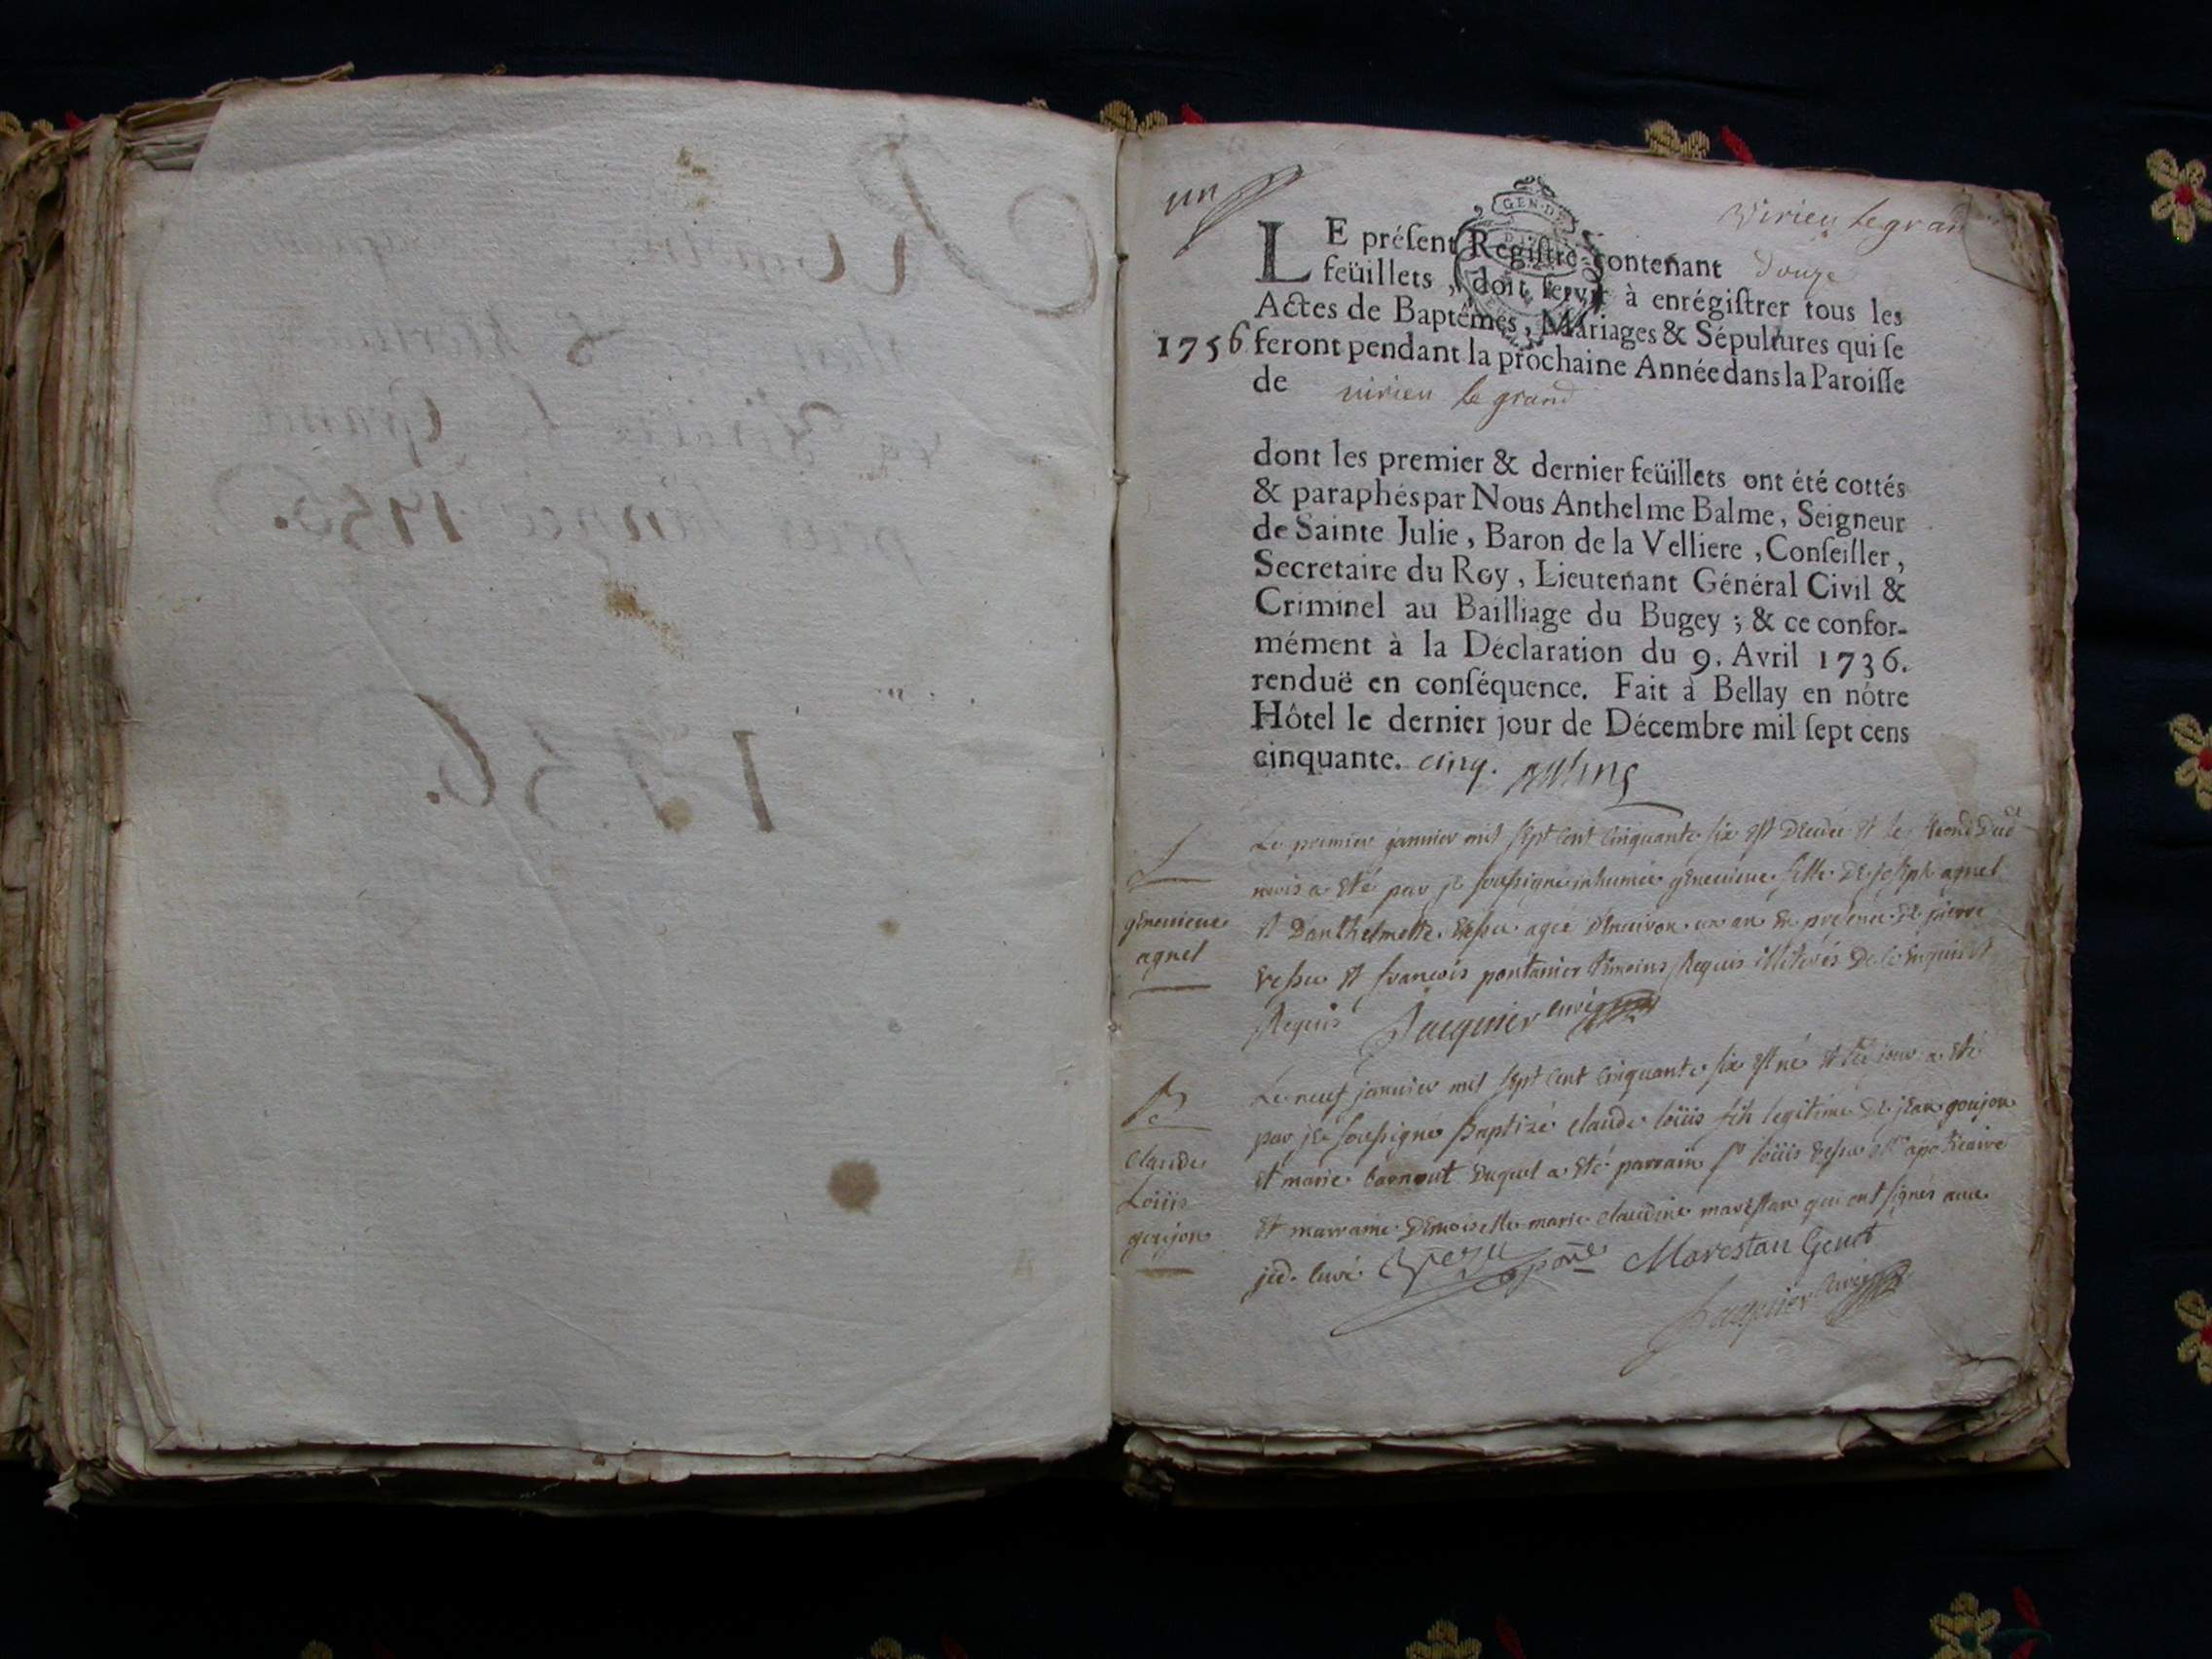 1756.
1756.
un
Virieu le grand
GEN·DE
LE préſent Regiſtre contenant douze
feüillets, doit ſervir à enrégiſtrer tous les
Actes de Baptêmes, Mariages & Sépultures qui ſe
1756 feront pendant la prochaine Année dans la Paroiſſe
de virieu le grand
dont les premier & dernier feüillets ont été cottés
& paraphés par Nous Anthelme Balme, Seigneur
de Sainte Julie, Baron de la Velliere, Conſeiller,
Secretaire du Roy, Lieutenant Général Civil &
Criminel au Bailliage du Bugey ; & ce confor-
mément à la Déclaration du 9. Avril 1736.
renduë en conſéquence. Fait à Bellay en nôtre
Hôtel le dernier jour de Décembre mil ſept cens
cinquante. cinq.
Le premier janvier mil sept cent cinquante six est decedee et le second dud
mois a eté par je soussigné inhumée genevieve fille de joseph agnel
genevieve
et d'anthelmette agée d'environ un an en presence de pierre
agnel
et francois pontanier temoins requis illiterés de ce enquis et
requis Jacquier curé
Le neuf janvier mil sept cent cinquante six est né et led jour a eté
par je soussigné Baptizé claude loüis fils legitime de jean goujon
claude
et marie duquel a eté parrain sr loüis apothicaire
Loüis
et marraine demoiselle marie claudine marestan qui ont signés avec
goujon
jéd. curé Marestan Genot
Jacquier curé